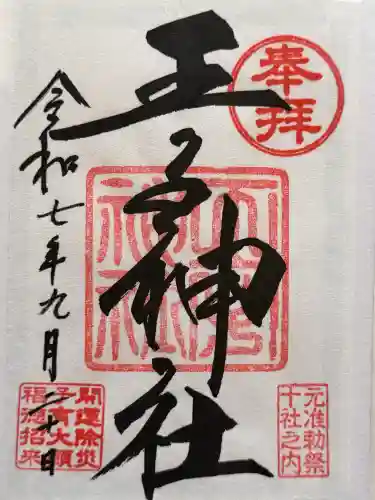 奉拝
王子神社
令和七年九月二十日
元准勅祭
十社之内
開運除災
子育大願
福徳招来